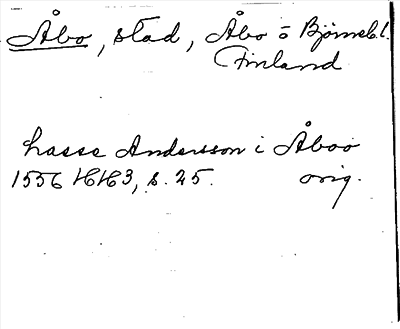 Åbo, stad, Åbo o Björneb.l.
Finland
Lasse Andersson i Åboo
1556 HH3, s. 25. orig.